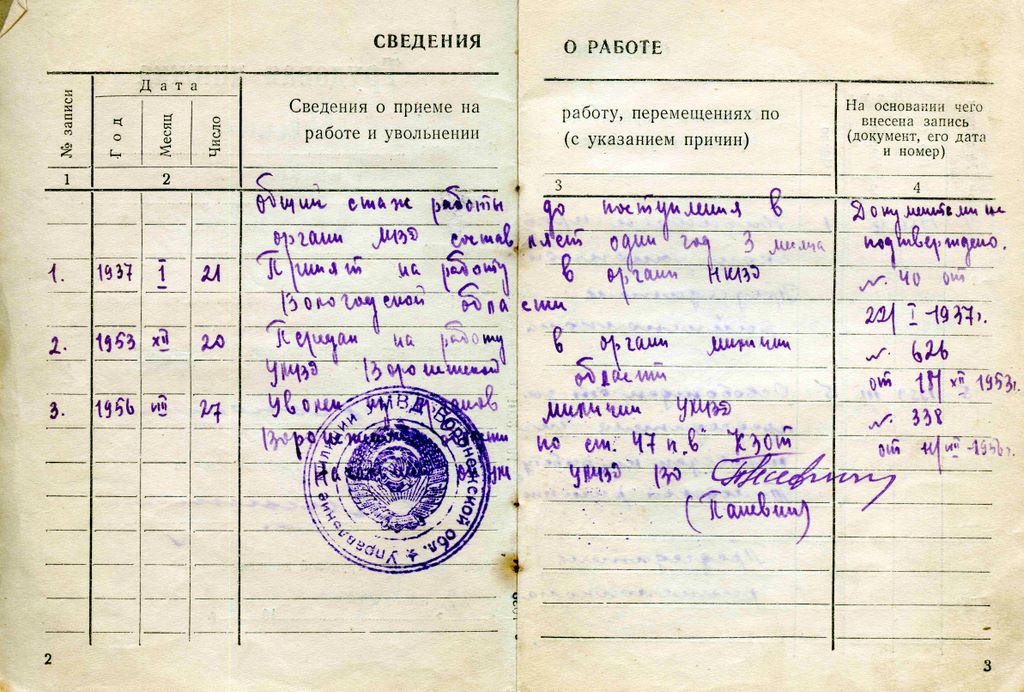 СВЕДЕНИЯ О РАБОТЕ
№ записи
Дата
Год
Месяц
Число
Сведения о приеме на работу, перемещениях по
работе и увольнении (с указанием причин)
На основании чего
внесена запись
(документ, его дата
и номер)
1 2 3 4
Общий стаж работы до поступления в Документами не
органи МВД составляет один год 3 месяца подтверждено.
1. 1937 I 21 Принят на работу в органи НКВД № 40 от
Вологодской области 22/I-1937г.
2. 1953 XII 20 Передан на работу в органи милиции № 626
УМВД Воронежской области от 18/XII 1953г.
3. 1956 VIII 27 Уволен из органов милиции УМВД № 338
Воронежской области по ст. 47 п. "в" КЗОТ от
УМВД ВО
(Паневин)
Управление милиции УМВД Воронежской обл.
2
3